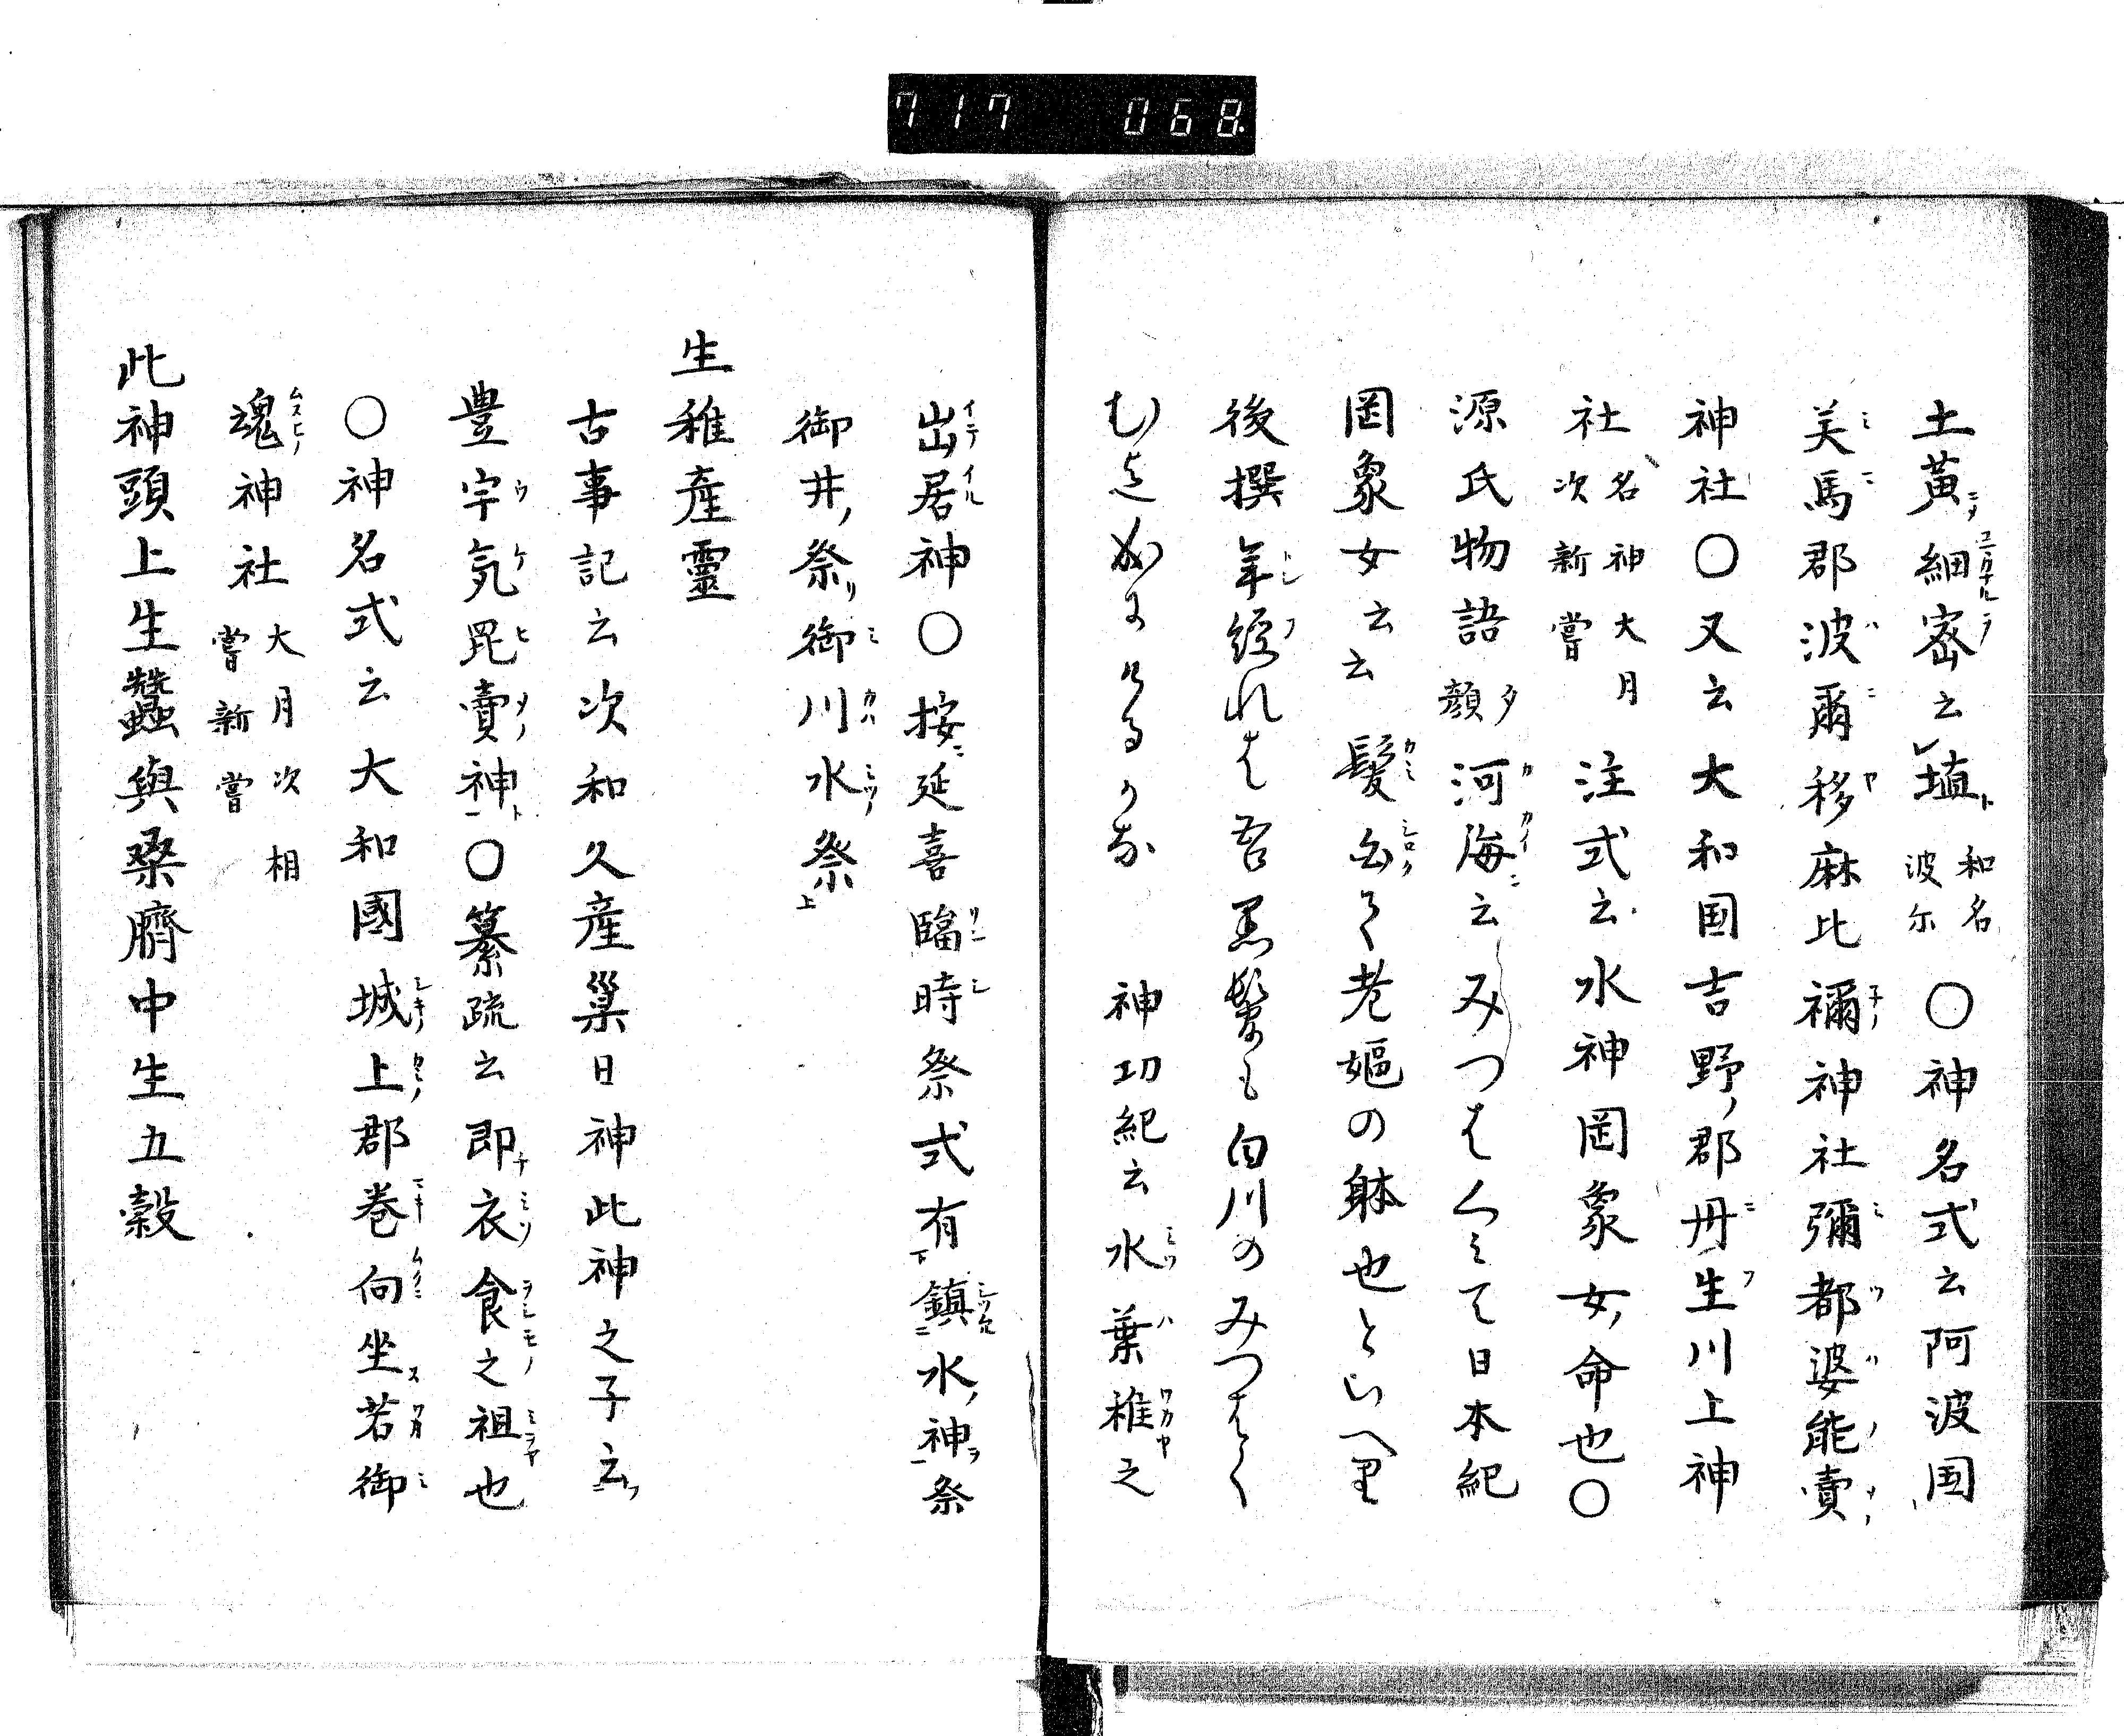 717 068
土黄細密云埴 和名波尓 〇神名式云阿波国
美馬郡波爾移麻比禰神社彌都婆能賣
神社〇又云大和国吉野郡丹生川上神
社 名神大月次新嘗 注式云水神罔象女命也〇
源氏物語 夕顔 河海云みつはくミて日本紀
罔象女云云髪白く老嫗の躰也といへり
後撰年経れは吾黒髪も白川のみつはく
むまてになりにけるかな 神功紀云水葉稚之
出居神〇按延喜臨時祭式有鎮水神祭
御井祭御川水祭
生稚産靈
古事記云次和久産巣日神此神之子云
豊宇気毘賣神〇纂疏云即衣食之祖也
〇神名式云大和國城上郡巻向坐若御
魂神社 大月次相嘗新嘗
此神頭上生蠶與桑臍中生五穀